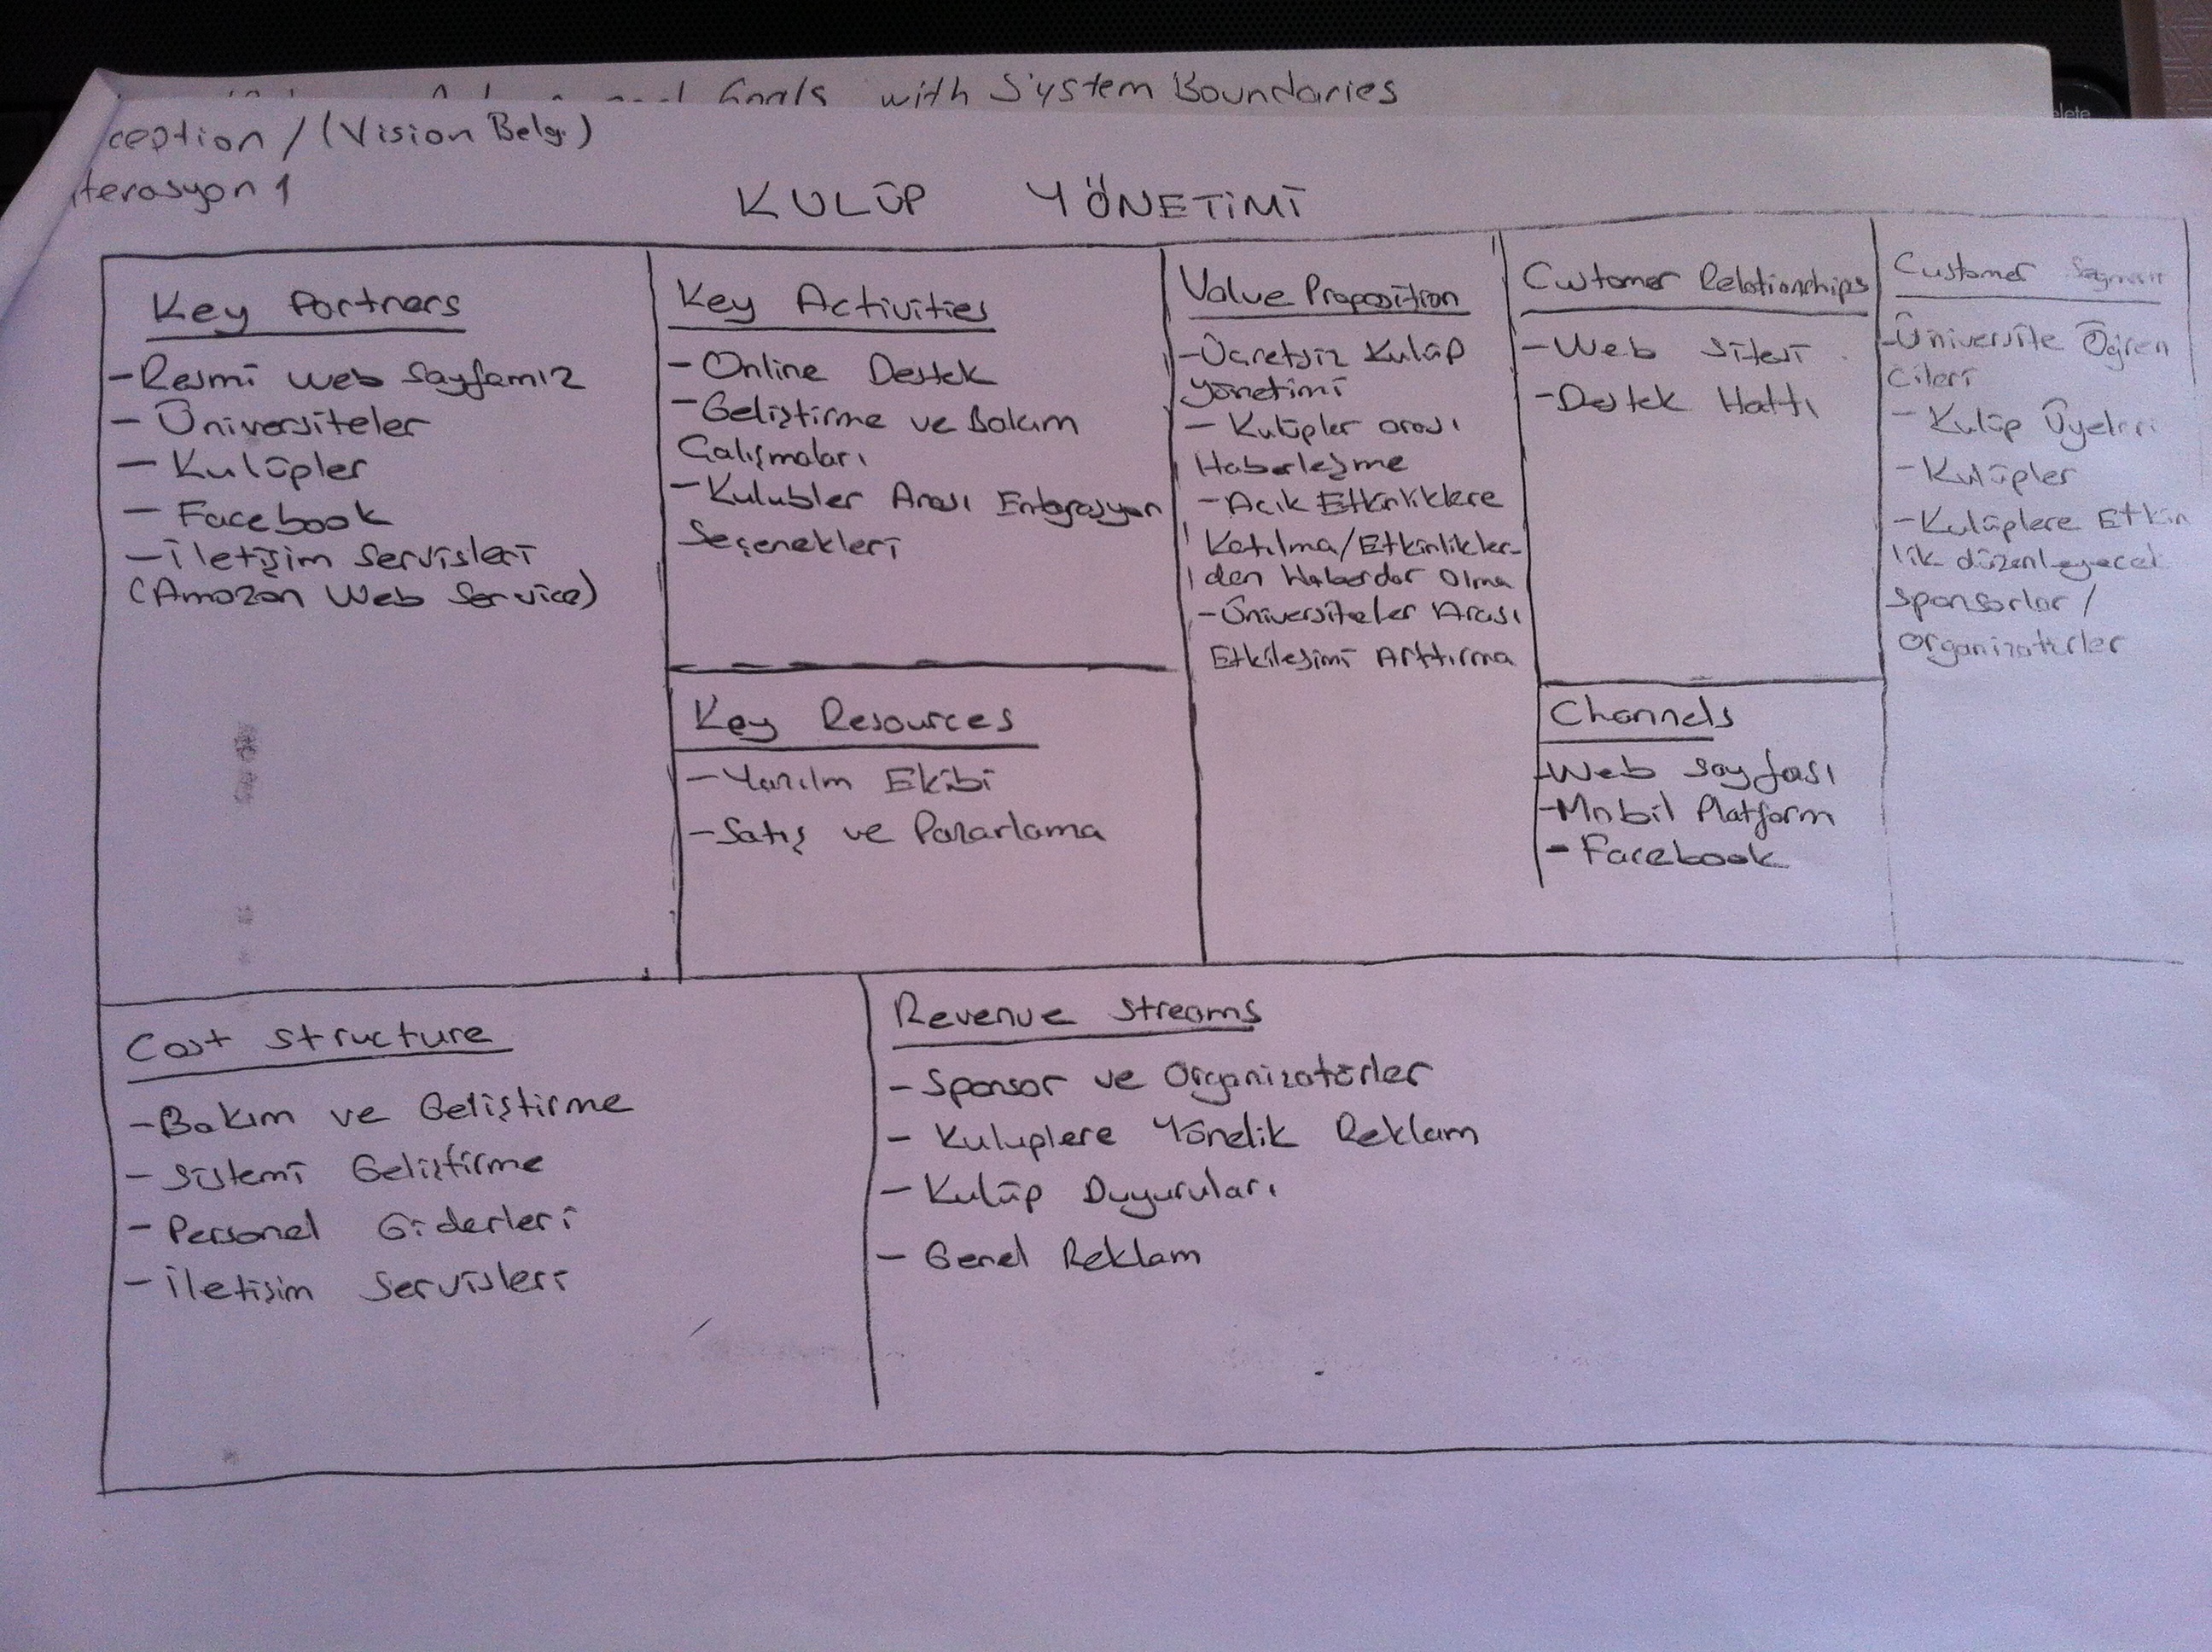 with System Boundaries
ception / (Vision Belg.)
terasyon 1
KULÜP YÖNETİMİ
Key Partners
- Resmi Web Sayfamız
- Üniversiteler
- Kulüpler
- Facebook
- İletişim Servisleri
(Amazon Web Service)
Key Activities
- Online Destek
- Geliştirme ve Bakım
Çalışmaları
- Kulübler Arası Entegrasyon
Seçenekleri
Key Resources
- Yazılım Ekibi
- Satış ve Pazarlama
Value Proposition
- Ücretsiz Kulüp
Yönetimi
- Kulüpler arası
Haberleşme
- Açık Etkinliklere
Katılma/Etkinlikler-
den Haberdar Olma
- Üniversiteler Arası
Etkileşimi Arttırma
Customer Relationships
- Web Sitesi
- Destek Hattı
Channels
- Web Sayfası
- Mobil Platform
- Facebook
Customer Segment
- Üniversite Öğren
cileri
- Kulüp Üyeleri
- Kulüpler
- Kulüplere Etkin
lik düzenleyecek
Sponsorlar /
Organizatörler
Cost Structure
- Bakım ve Geliştirme
- Sistemi Geliştirme
- Personel Giderleri
- İletişim Servisleri
Revenue Streams
- Sponsor ve Organizatörler
- Kulüplere Yönelik Reklam
- Kulüp Duyuruları
- Genel Reklam